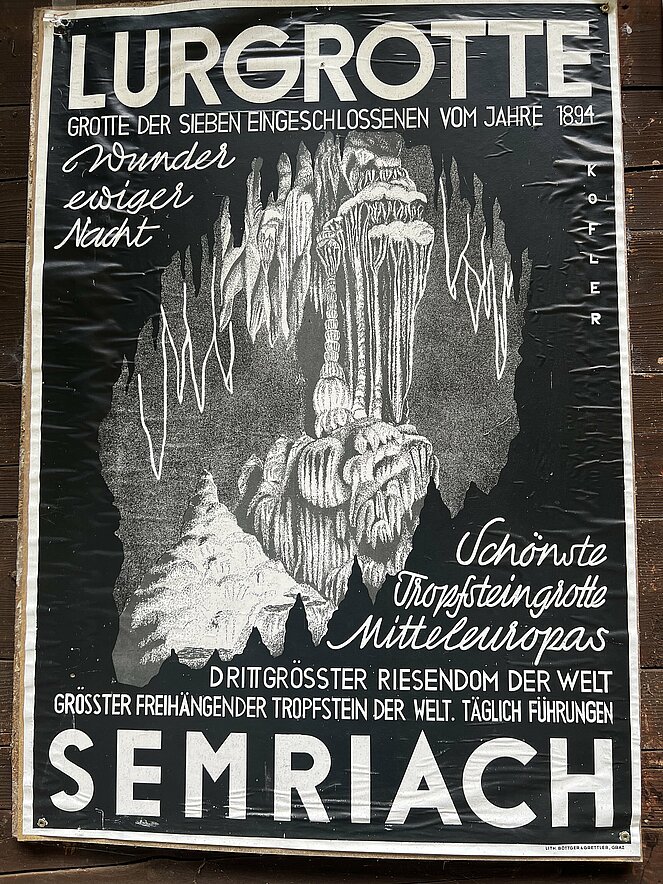 LURGROTTE
GROTTE DER SIEBEN EINGESCHLOSSENEN VOM JAHRE 1894
Wunder
ewiger
Nacht
KOFLER
Schönste
Tropfsteingrotte
Mitteleuropas
DRITTGRÖSSTER RIESENDOM DER WELT
GRÖSSTER FREIHÄNGENDER TROPFSTEIN DER WELT. TÄGLICH FÜHRUNGEN
SEMRIACH
LITH. BÖTTGER & GRETTLER, GRAZ